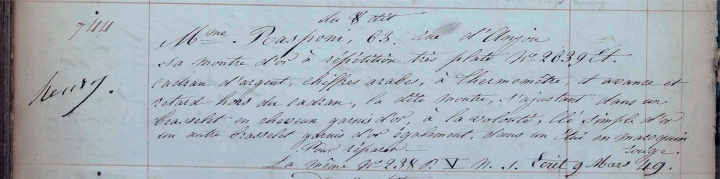 du 8 dit
744
Mme. Rasponi, 63. rue d'Anjou
Sa montre d'or à répétition très plate No 2639
cadran d'argent, chiffres arabes, à thermomètre, et avance et
retard hors du cadran, la dite montre, s'ajustant dans un
brasselet en cheveux garni d'or, à la volonté, Clé simple d'or
un autre brasselet garni d'or également, dans un Etui en maroquin
rouge.
Pour réparer
La même No 238 P. V N. 1. Ecrit 9 Mars 49.